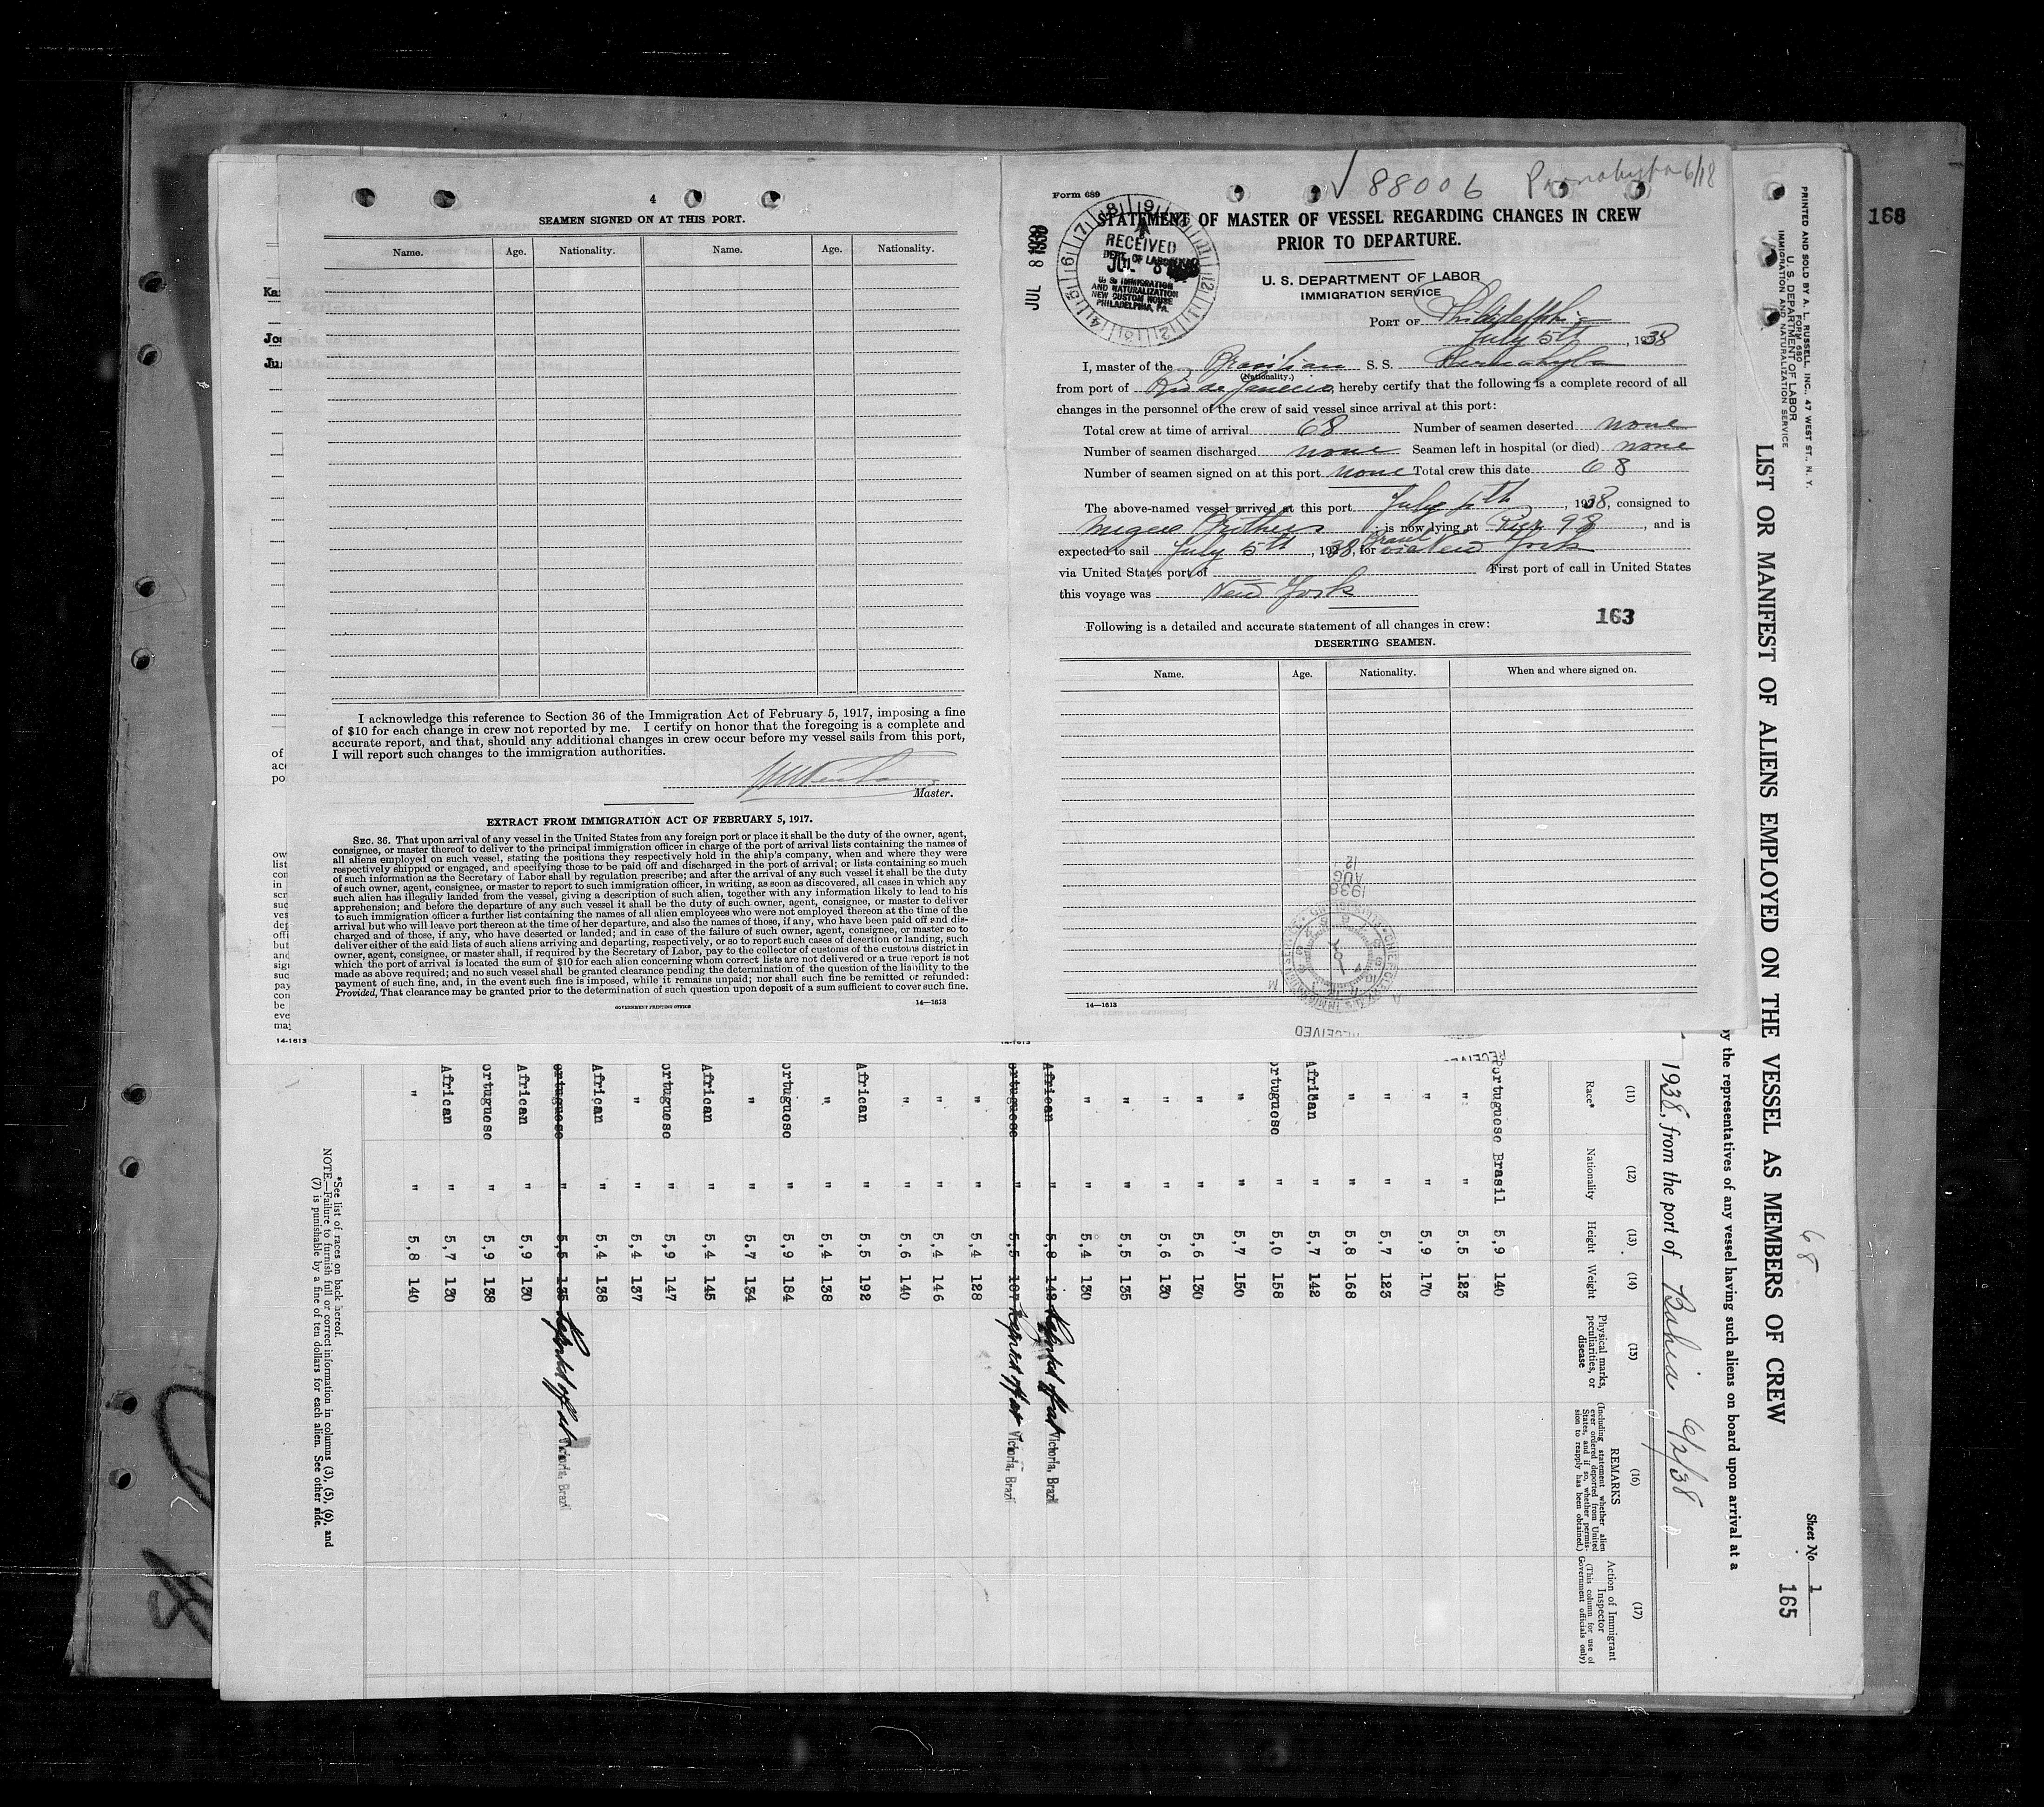 168
✓ 88006 Parnahyba 6/18
4
SEAMEN SIGNED ON AT THIS PORT.
Name. Age. Nationality. Name. Age. Nationality.
I acknowledge this reference to Section 36 of the Immigration Act of February 5, 1917, imposing a fine
of $10 for each change in crew not reported by me. I certify on honor that the foregoing is a complete and
accurate report, and that, should any additional changes in crew occur before my vessel sails from this port,
I will report such changes to the immigration authorities.
Master.
EXTRACT FROM IMMIGRATION ACT OF FEBRUARY 5, 1917.
SEC. 36. That upon arrival of any vessel in the United States from any foreign port or place it shall be the duty of the owner, agent,
consignee, or master thereof to deliver to the principal immigration officer in charge of the port of arrival lists containing the names of
all aliens employed on such vessel, stating the positions they respectively hold in the ship's company, when and where they were
respectively shipped or engaged, and specifying those to be paid off and discharged in the port of arrival; or lists containing so much
of such information as the Secretary of Labor shall by regulation prescribe; and after the arrival of any such vessel it shall be the duty
of such owner, agent, consignee, or master to report to such immigration officer, in writing, as soon as discovered, all cases in which any
such alien has illegally landed from the vessel, giving a description of such alien, together with any information likely to lead to his
apprehension; and before the departure of any such vessel it shall be the duty of such owner, agent, consignee, or master to deliver
to such immigration officer a further list containing the names of all alien employees who were not employed thereon at the time of the
arrival but who will leave port thereon at the time of her departure, and also the names of those, if any, who have been paid off and dis-
charged and of those, if any, who have deserted or landed; and in case of the failure of such owner, agent, consignee, or master so to
deliver either of the said lists of such aliens arriving and departing, respectively, or so to report such cases of desertion or landing, such
owner, agent, consignee, or master shall, if required by the Secretary of Labor, pay to the collector of customs of the customs district in
which the port of arrival is located the sum of $10 for each alien concerning whom correct lists are not delivered or a true report is not
made as above required; and no such vessel shall be granted clearance pending the determination of the question of the liability to the
payment of such fine, and, in the event such fine is imposed, while it remains unpaid; nor shall such fine be remitted or refunded:
Provided, That clearance may be granted prior to the determination of such question upon deposit of a sum sufficient to cover such fine.
GOVERNMENT PRINTING OFFICE 14—1613
14-1613
Form 689
JUL 8 1938
RECEIVED
DEPT. OF LABOR
JUL 8 1938
U. S. IMMIGRATION
AND NATURALIZATION
NEW CUSTOM HOUSE
PHILADELPHIA, PA.
STATEMENT OF MASTER OF VESSEL REGARDING CHANGES IN CREW
PRIOR TO DEPARTURE.
U. S. DEPARTMENT OF LABOR
IMMIGRATION SERVICE
PORT OF Philadelphia
July 5th, 1938
I, master of the Brasilian S. S. Parnahyba
(Nationality.)
from port of Rio de Janeiro, hereby certify that the following is a complete record of all
changes in the personnel of the crew of said vessel since arrival at this port:
Total crew at time of arrival 68 Number of seamen deserted none
Number of seamen discharged none Seamen left in hospital (or died) none
Number of seamen signed on at this port none Total crew this date 68
The above-named vessel arrived at this port July 4th, 1938, consigned to
Brothers; is now lying at Pier 98, and is
expected to sail July 5th, 1938, for Brasil via New York
via United States port of First port of call in United States
this voyage was New York
163
Following is a detailed and accurate statement of all changes in crew:
DESERTING SEAMEN.
Name. Age. Nationality. When and where signed on.
1938 AUG 12
RECEIVED
14—1613
PRINTED AND SOLD BY A. L. RUSSELL, INC., 47 WEST ST., N. Y.
FORM 680
U. S. DEPARTMENT OF LABOR
IMMIGRATION AND NATURALIZATION SERVICE
LIST OR MANIFEST OF ALIENS EMPLOYED ON THE VESSEL AS MEMBERS OF CREW
68
Sheet No. 1
165
by the representatives of any vessel having such aliens on board upon arrival at a
1938, from the port of Bahia 6/2/38
(11) (12) (13) (14) (15) (16) (17)
Race* Nationality Height Weight Physical marks, peculiarities, or disease REMARKS (Including statement whether alien ever ordered deported from United States, and if so, whether permission to reapply has been obtained.) Action of Immigrant Inspector (This column for use of Government officials only)
ortuguese Brasil 5,9 140
" " 5,5 123
" " 5,9 170
" " 5,7 123
" " 5,8 168
African " 5,7 142
ortuguese " 5,0 158
" " 5,7 150
" " 5,6 130
" " 5,6 130
" " 5,5 135
" " 5,4 130
African " 5,8 142 Signed off at Victoria, Brazil
ortuguese " 5,5 107 Signed off at Victoria, Brazil
" " 5,4 128
" " 5,4 146
" " 5,6 140
African " 5,5 192
" " 5,4 138
ortuguese " 5,9 184
" " 5.7 134
African " 5,4 145
ortuguese " 5,9 147
" " 5,4 137
African " 5,4 138
ortuguese " 5,5 135 Signed off at Victoria, Brazil
African " 5,9 130
ortuguese " 5,9 138
African " 5,7 130
" " 5,8 140
*See list of races on back hereof.
NOTE.—Failure to furnish full or correct information in columns (3), (5), (6), and
(7) is punishable by a fine of ten dollars for each alien. See other side.